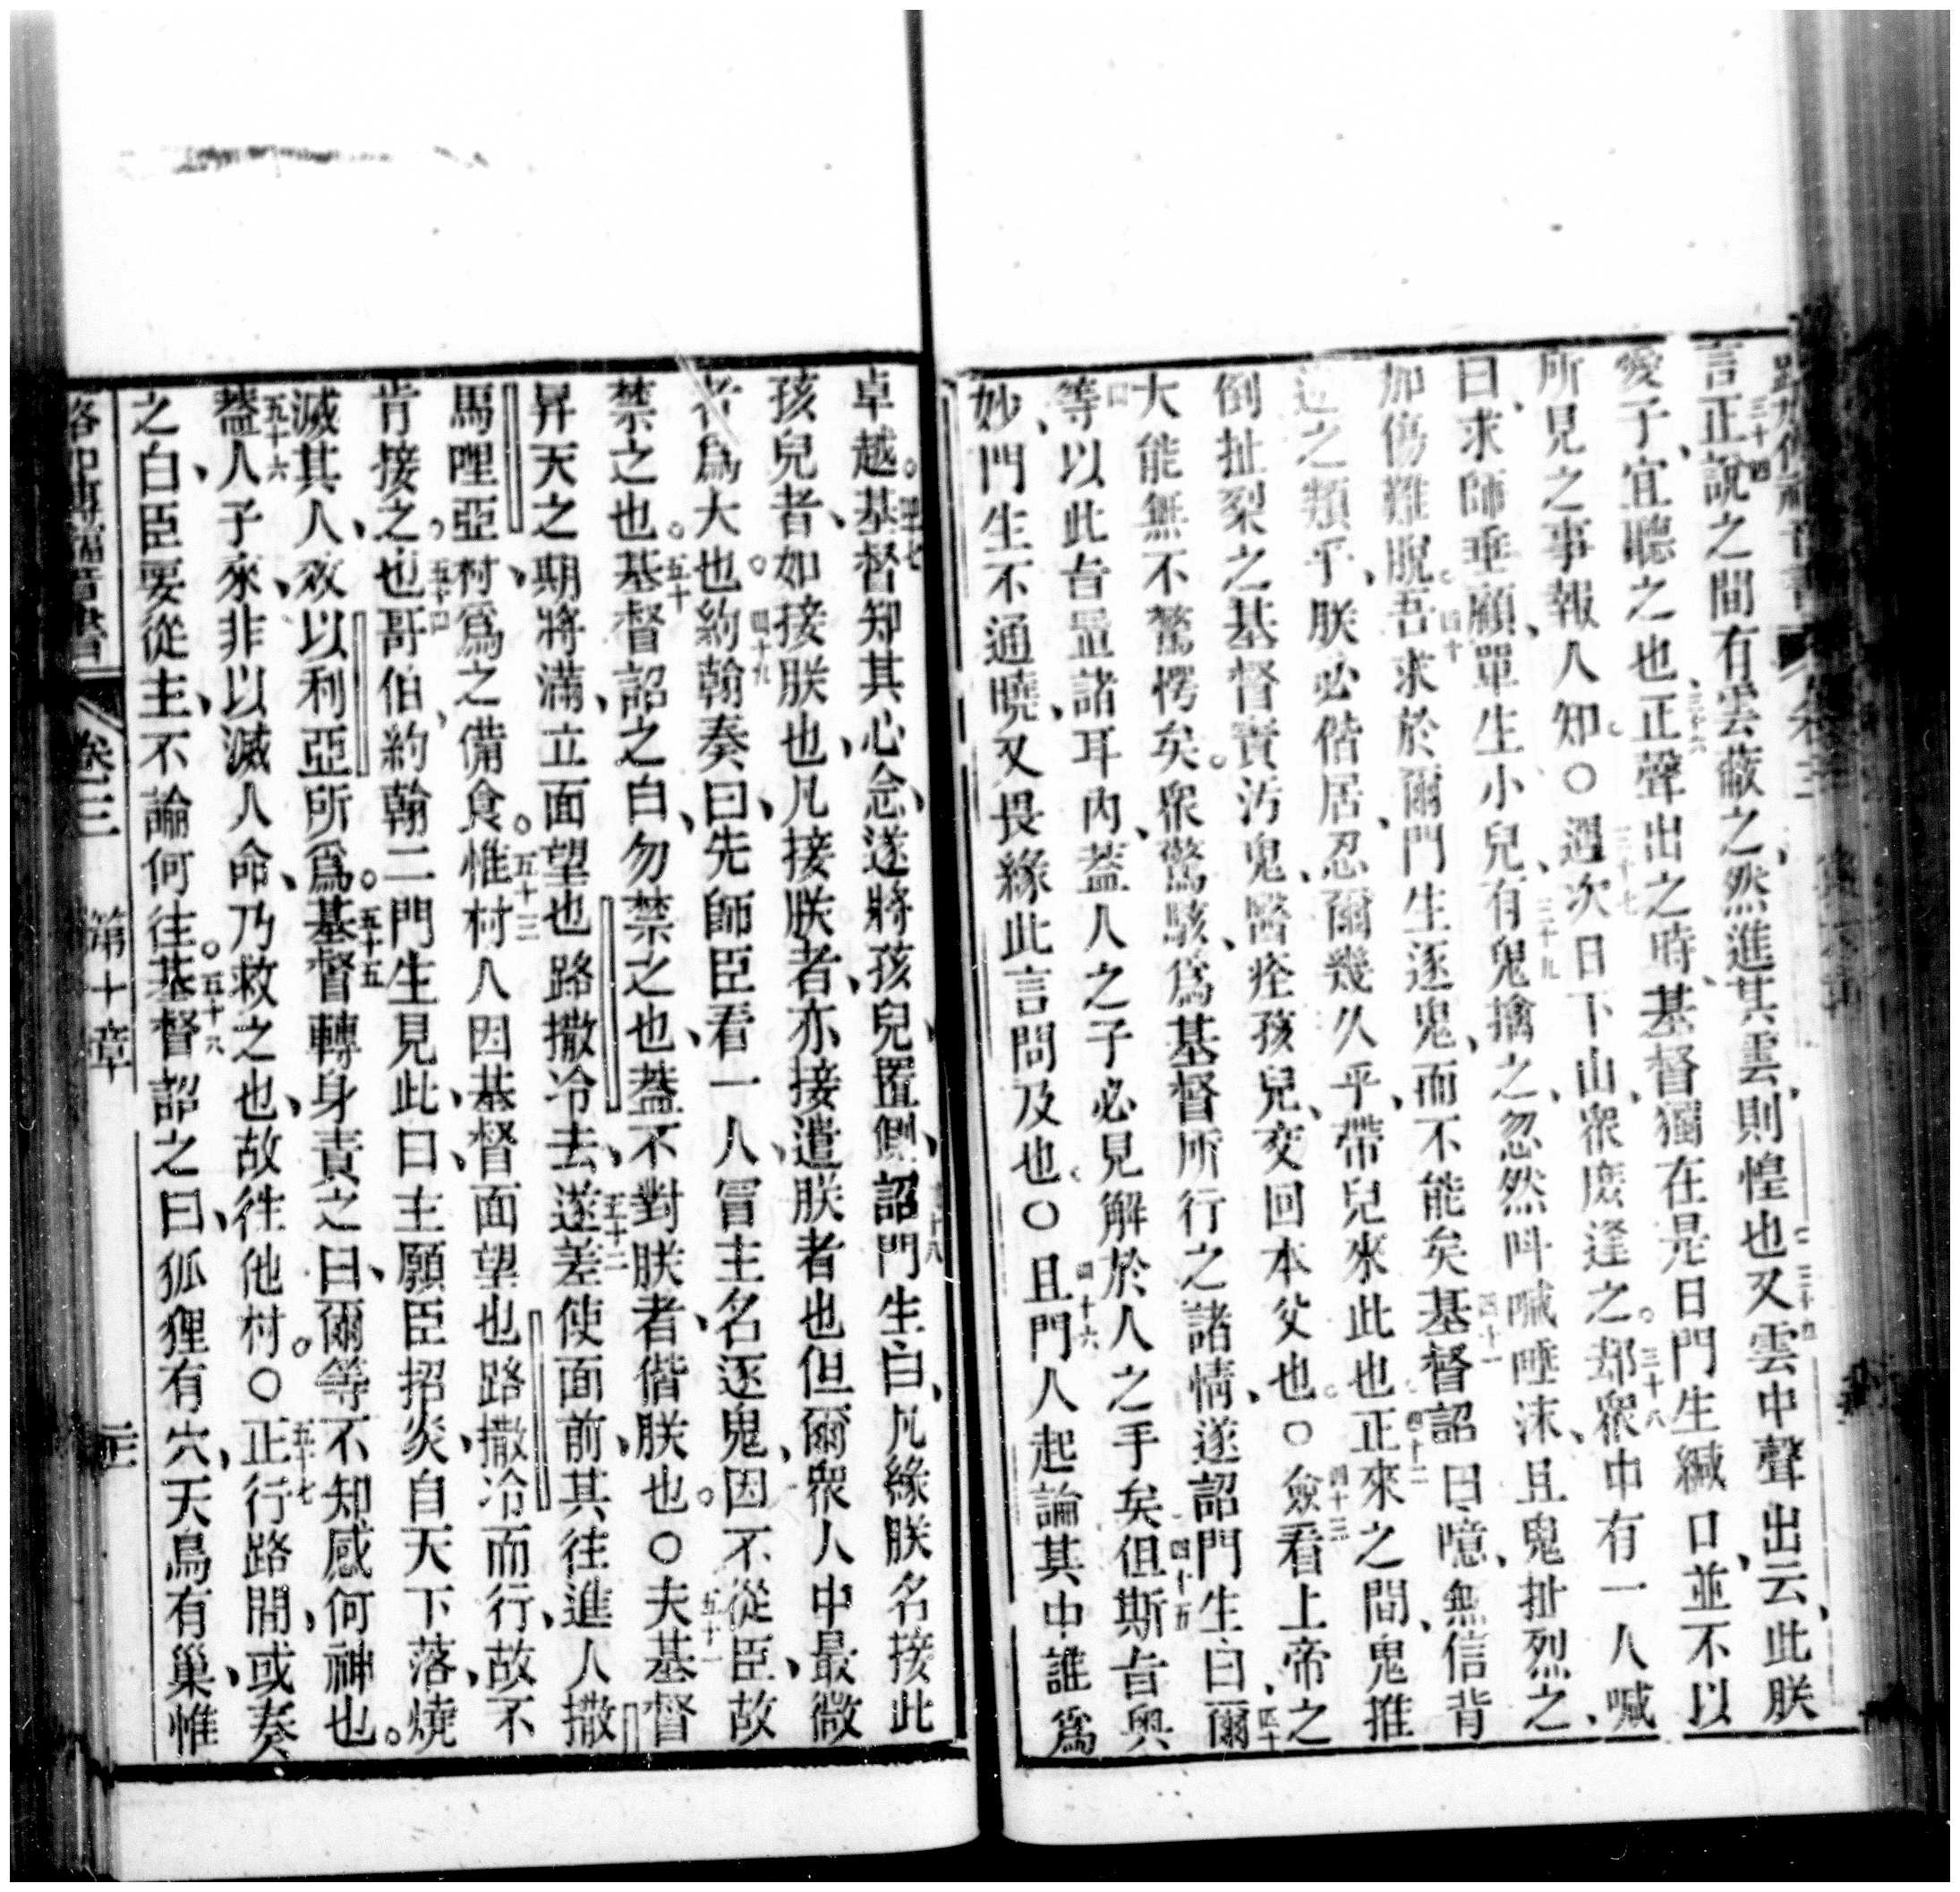 言正說之間有雲蔽之然進其雲則惶也又雲中聲出云此朕
三十四 三十五
愛子宜聽之也正聲出之時基督獨在是日門生緘口並不以
三十六
所見之事報人知〇遇次日下山衆庶逢之却衆中有一人喊
三十七 三十八
曰求師垂顧單生小兒有鬼擒之忽然呌喊唾沫且鬼扯烈之
三十九
加傷難脫吾求於爾門生逐鬼而不能矣基督詔曰噫無信背
四十 四十一
之類乎朕必偕居忍爾幾久乎帶兒來此也正來之間鬼推
四十二
倒扯裂之基督責汚鬼醫痊孩兒交回本父也〇僉看上帝之
四十三
大能無不驚愕矣衆驚駭爲基督所行之諸情遂詔門生曰爾
四十
等以此旨置諸耳內蓋人之子必見解於人之手矣但斯旨奧
四 四十五
妙門生不通曉又畏緣此言問及也〇且門人起論其中誰爲
四十六
卓越基督知其心念遂將孩兒置側詔門生白凡緣朕名接此
四七 四十八
孩兒者如接朕也凡接朕者亦接遣朕者也但爾衆人中最微
者爲大也約翰奏曰先師臣看一人冒主名逐鬼因不從臣故
四十九
禁之也基督詔之白勿禁之也蓋不對朕者偕朕也〇夫基督
五十 五十一
昇天之期將滿立面望也路撒冷去遂差使面前其往進人撒
五十二
馬哩亞村爲之備食惟村人因基督面望也路撒冷而行故不
五十三
肯接之也哥伯約翰二門生見此曰主願臣招炎自天下落燒
五十四
滅其人效以利亞所爲基督轉身責之曰爾等不知感何神也
五十五
蓋人子來非以滅人命乃救之也故往他村〇正行路間或奏
五十六 五十七
之白臣要從主不論何往基督詔之曰狐狸有穴天鳥有巢惟
五十八
路加傳福音書 卷三 第十章 三